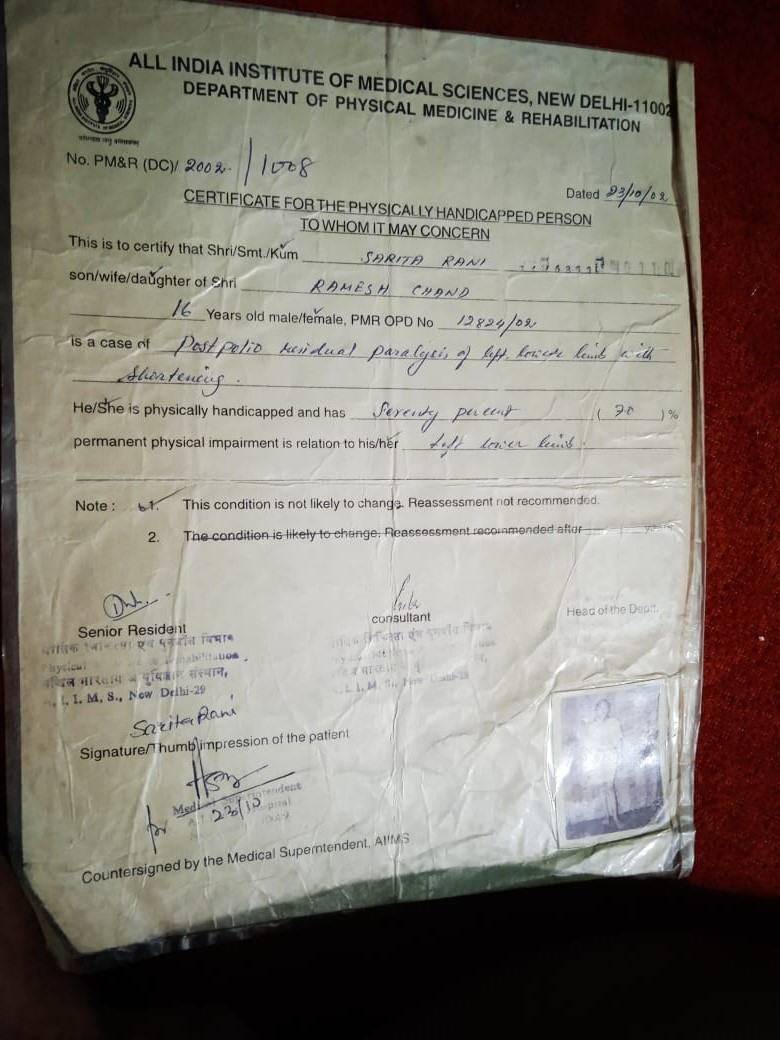 ALL INDIA INSTITUTE OF MEDICAL SCIENCES, NEW DELHI-11002
DEPARTMENT OF PHYSICAL MEDICINE & REHABILITATION
No. PM&R (DC)/ 2002 // 1008
Dated 23/10/02
CERTIFICATE FOR THE PHYSICALLY HANDICAPPED PERSON
TO WHOM IT MAY CONCERN
This is to certify that Shri/Smt./Kum SARITA RANI
son/wife/daughter of Shri RAMESH CHAND
16 Years old male/female, PMR OPD No 12824/02
is a case of Postpolio residual paralysis of left lower limb with
Shortening.
He/She is physically handicapped and has Seventy percent ( 70 )%
permanent physical impairment is relation to his/her Left lower limb.
Note : 1. This condition is not likely to change. Reassessment not recommended.
2. The condition is likely to change. Reassessment recommended after years
Senior Resident
consultant
Head of the Deptt.
Physical Rehabilitation
I. M. S., New Delhi-29
I. M. S., New Delhi-29
Sarita Rani
Signature/Thumb impression of the patient
for 23/10
Countersigned by the Medical Supemtendent. AIIMS